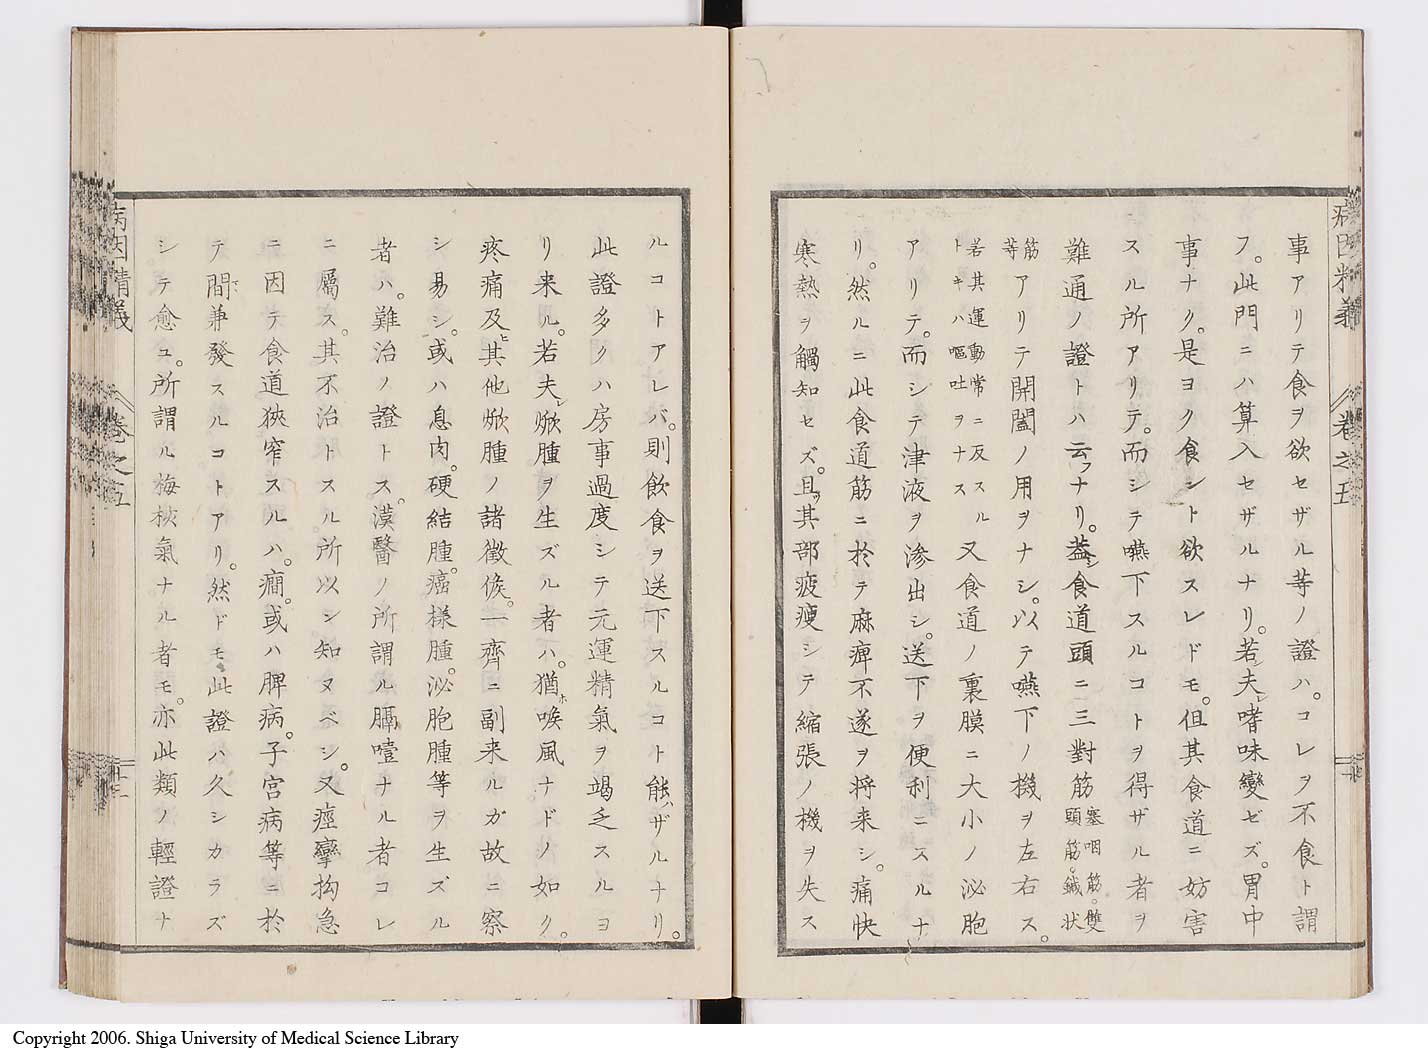 病因精義 卷之五
事アリテ食ヲ欲セザル等ノ證ハ。コレヲ不食ト謂
フ。此門ニハ算入セザルナリ。若シ夫レ嗜味變ゼズ。胃中
事ナク。是ヨク食シト欲スレドモ。但其食道ニ妨害
スル所アリテ。而シテ嚥下スルコトヲ得ザル者ヲ
難通ノ證トハ云フナリ。蓋シ食道頭ニ三對筋塞咽筋。雙頭筋。鍼状
筋等アリテ開闔ノ用ヲナシ。以テ嚥下ノ機ヲ左右ス。
若其運動常ニ反スルトキハ嘔吐ヲナス又食道ノ裏膜ニ大小ノ泌胞
アリテ。而シテ津液ヲ滲出シ。送下ヲ便利ニスルナ
リ。然ルニ此食道筋ニ於テ麻痺不遂ヲ将来シ。痛快
寒熱ヲ觸知セズ。且ツ其部疲痩シテ縮張ノ機ヲ失ス
ルコトアレバ。則飲食ヲ送下スルコト能ハザルナリ。
此證多クハ房事過度シテ元運精氣ヲ竭乏スルヨ
リ来ル。若夫シ焮腫ヲ生ズル者ハ。猶ホ喉風ナドノ如ク。
疼痛及ヒ其他焮腫ノ諸徴候。一齊ニ副来ルガ故ニ察
シ易シ。或ハ息肉。硬結腫。癌様腫。泌胞腫等ヲ生ズル
者ハ。難治ノ證トス。漢醫ノ所謂ル膈噎ナル者コレ
ニ屬ス。其不治トスル所以ン知ヌベシ。又痙攣拘急
ニ因テ食道狹窄スルハ。癇。或ハ脾病。子宮病等ニ於
テ間デ兼發スルコトアリ。然ドモ此證ハ久シカラズ
シテ愈ユ。所謂ル梅核氣ナル者モ。亦此類ノ輕證ナ
病因精義 卷之五
Copyright 2006. Shiga University of Medical Science Library